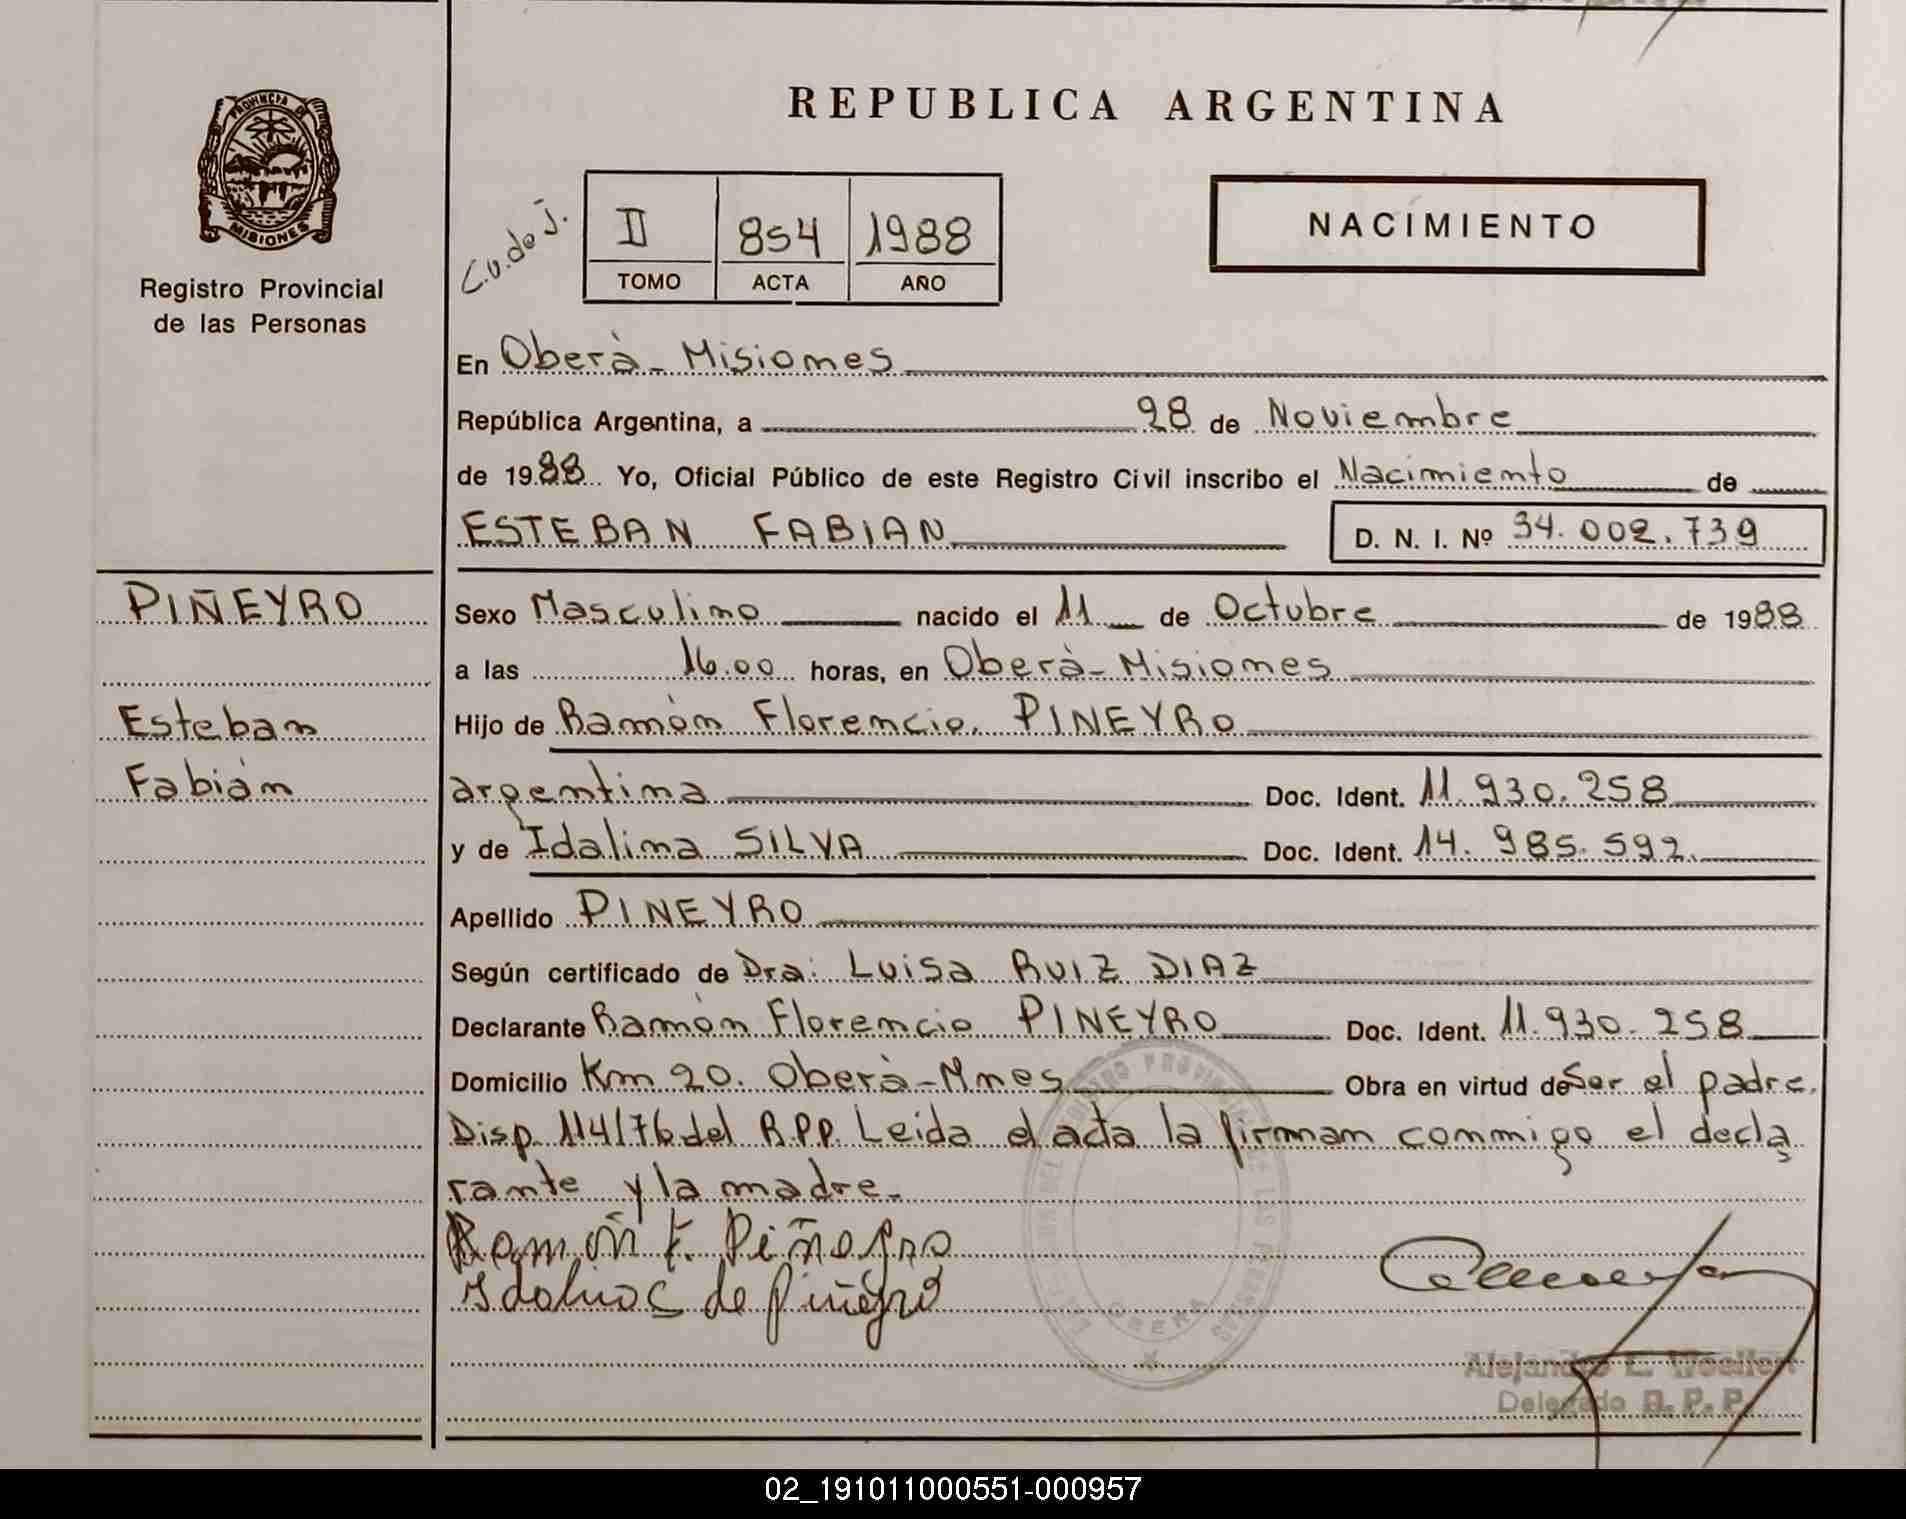 REPUBLICA ARGENTINA
PROVINCIA DE
MISIONES
Registro Provincial
de las Personas
C.U. de J.
II 854 1988
TOMO ACTA AÑO
NACIMIENTO
En Oberà - Misiones
República Argentina, a 28 de Noviembre
de 1988 Yo, Oficial Público de este Registro Civil inscribo el Nacimiento de
ESTEBAN FABIAN D. N. I. Nº 34.002.739
PIÑEYRO
Esteban
Fabián
Sexo Masculino nacido el 11 de Octubre de 1988
a las 16.00 horas, en Oberà - Misiones
Hijo de Ramòn Florencio, PINEYRO
argentina Doc. Ident. 11.930.258
y de Idalina SILVA Doc. Ident. 14.985.592.
Apellido PINEYRO
Según certificado de Dra: Luisa RUIZ DIAZ
Declarante Ramòn Florencio PINEYRO Doc. Ident. 11.930.258
Domicilio Km 20. Oberà - Mnes Obra en virtud de Ser el padre.
Disp. 114/76 del R.P.P. Leida el acta la firman conmigo el decla
rante y la madre.
Ramoñ F. Piñeyro
de Piñeyro
REGISTRO PROVINCIAL DE LAS PERSONAS
OBERA
Delegado R. P. P.
02_191011000551-000957